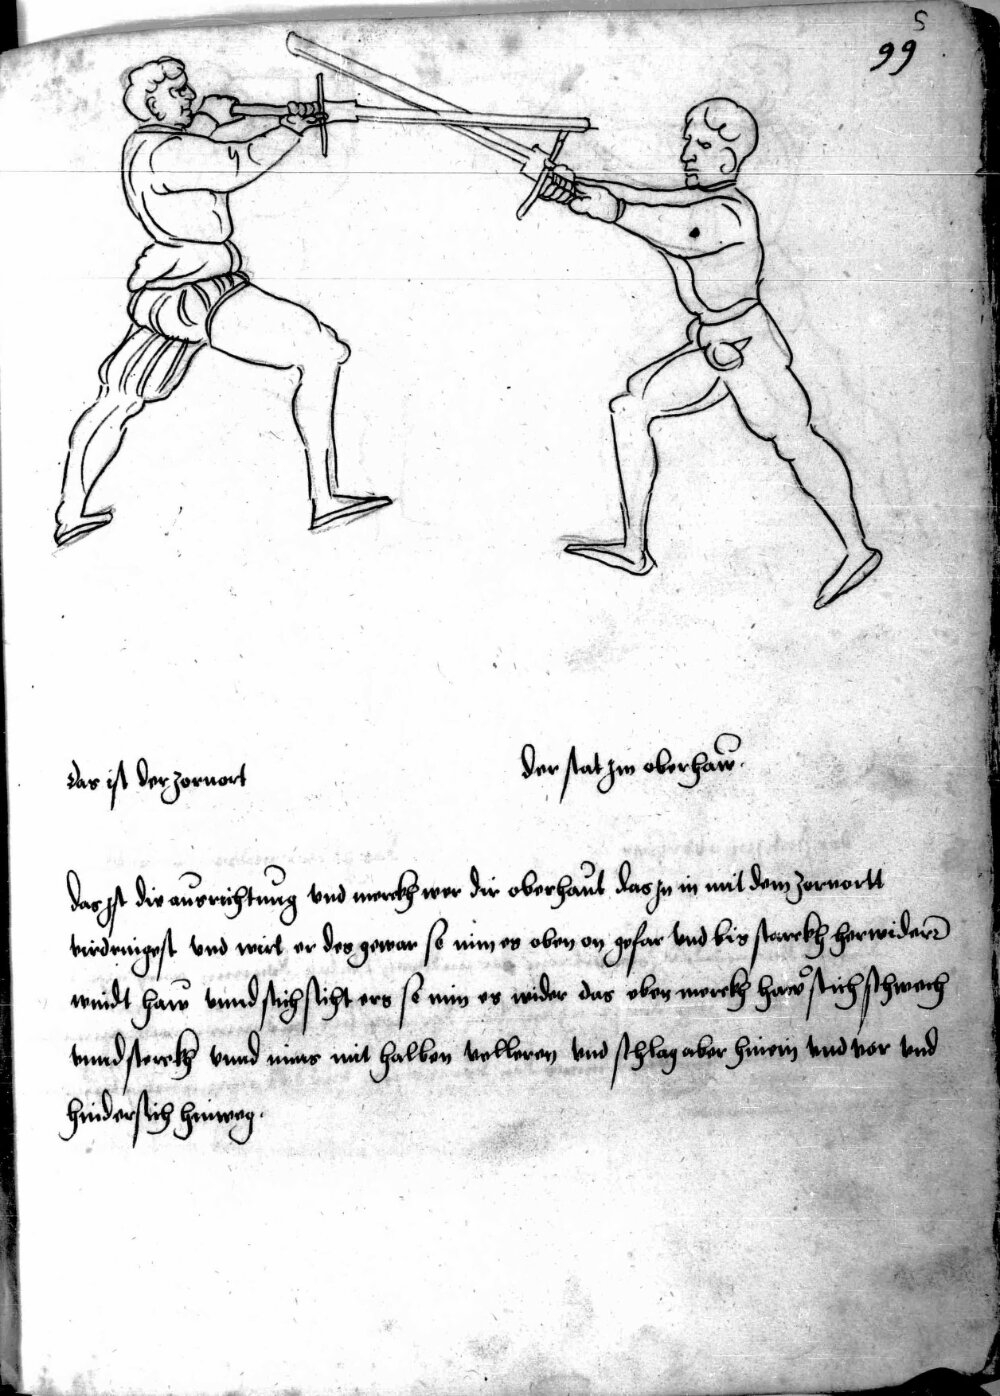 5
99
das ist der zornort
der stat Jm oberhaw.
das Jst die ausrichtung vnd merckh wer dir oberhaut das Ju in mit dem zornortt
vnd wirt er des gewar so nim es oben on gefar vnd bis starckh herwider
windt haw vnnd stich sticht ers so nim es wider das eben merckh haw stich schwech
vnnd sterckh vnnd nims mit halben vnd schlag aber hinein vnd vor vnd
hinderstich hinweg.